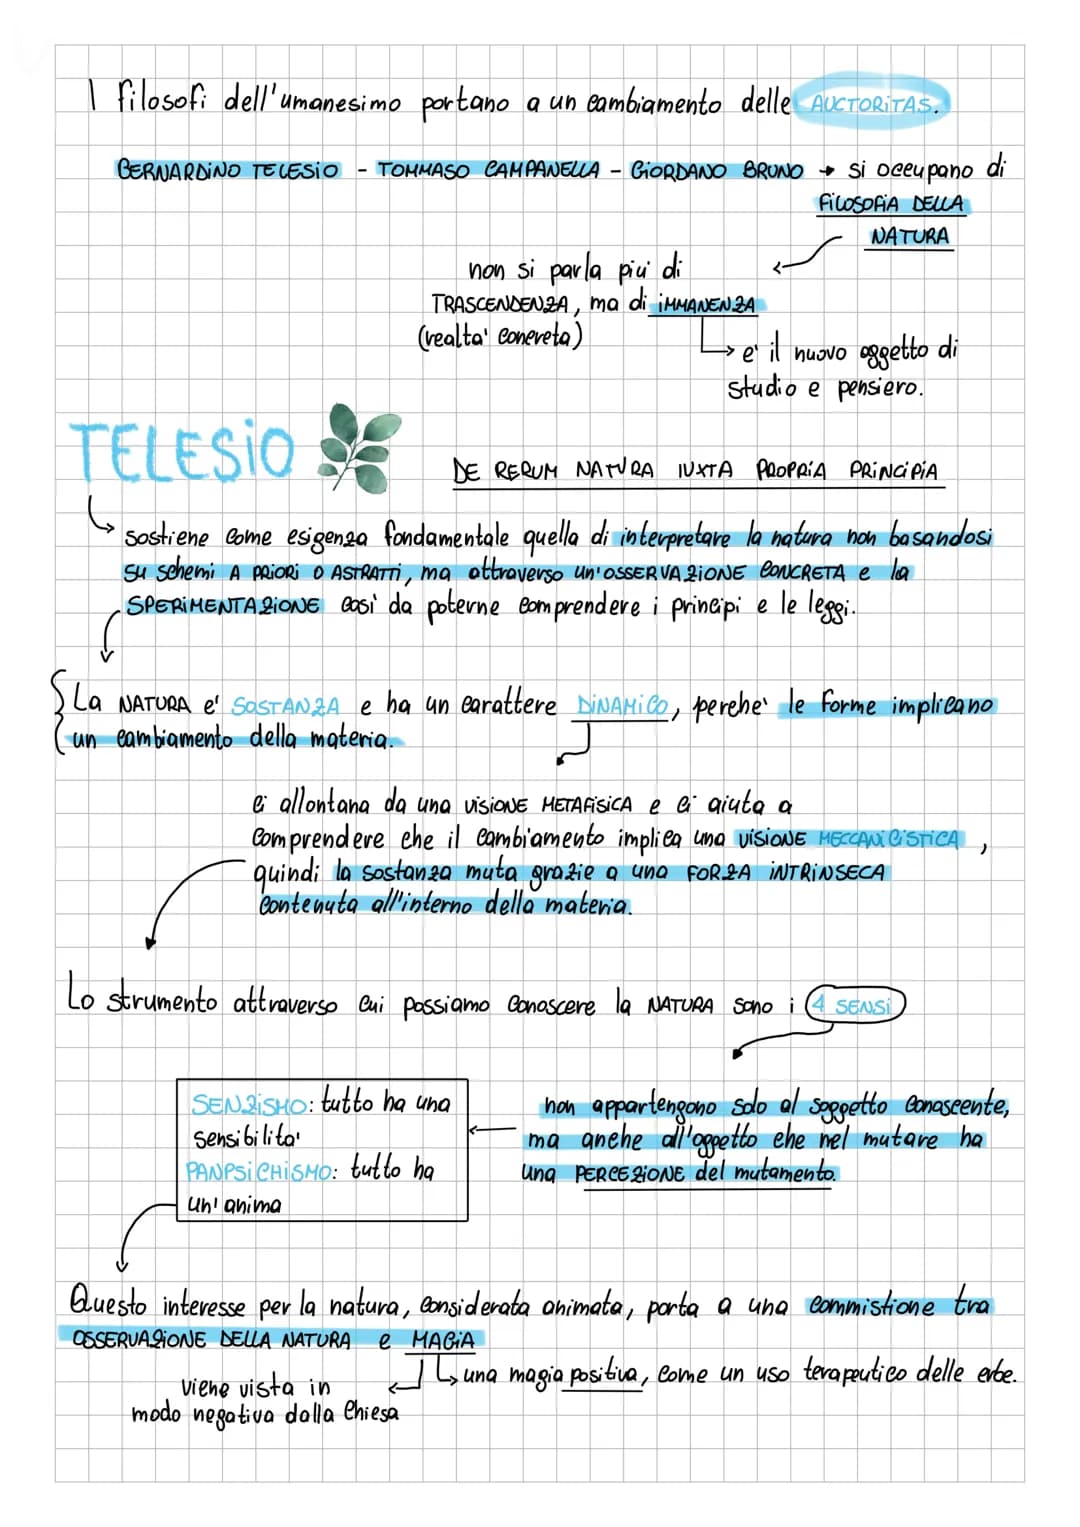 I filosofi dell'umanesimo portano a un cambiamento delle AUCTORITAS.
BERNARDINO TELESIO - TOMMASO CAMPANELLA - GIORDANO BRUNO → si occupano di
FILOSOFIA DELLA
NATURA
non si parla piu' di
TRASCENDENZA, ma di IMMANENZA
(realta' concreta)
→ e' il nuovo oggetto di
studio e pensiero.
TELESIO
DE RERUM NATURA IUXTA PROPRIA PRINCIPIA
sostiene come esigenza fondamentale quella di interpretare la natura non basandosi
su schemi A PRIORI O ASTRATTI, ma attraverso un'OSSERVAZIONE CONCRETA e la
SPERIMENTAZIONE cosi' da poterne comprendere i principi e le leggi.
La NATURA e' SOSTANZA e ha un carattere DINAMICO, perche' le forme implicano
un cambiamento della materia.
ci allontana da una VISIONE METAFISICA e ci aiuta a
comprendere che il cambiamento implica una VISIONE MECCANICISTICA,
quindi la sostanza muta grazie a una FORZA INTRINSECA
contenuta all'interno della materia.
Lo strumento attraverso cui possiamo conoscere la NATURA sono i 4 SENSI
SENZISMO: tutto ha una
sensibilita'
PANPSICHISMO: tutto ha
un'anima
non appartengono solo al soggetto conoscente,
ma anche all'oggetto che nel mutare ha
una PERCEZIONE del mutamento.
Questo interesse per la natura, considerata animata, porta a una commistione tra
OSSERVAZIONE DELLA NATURA e MAGIA
una magia positiva, come un uso terapeutico delle erbe.
viene vista in
modo negativa dalla Chiesa